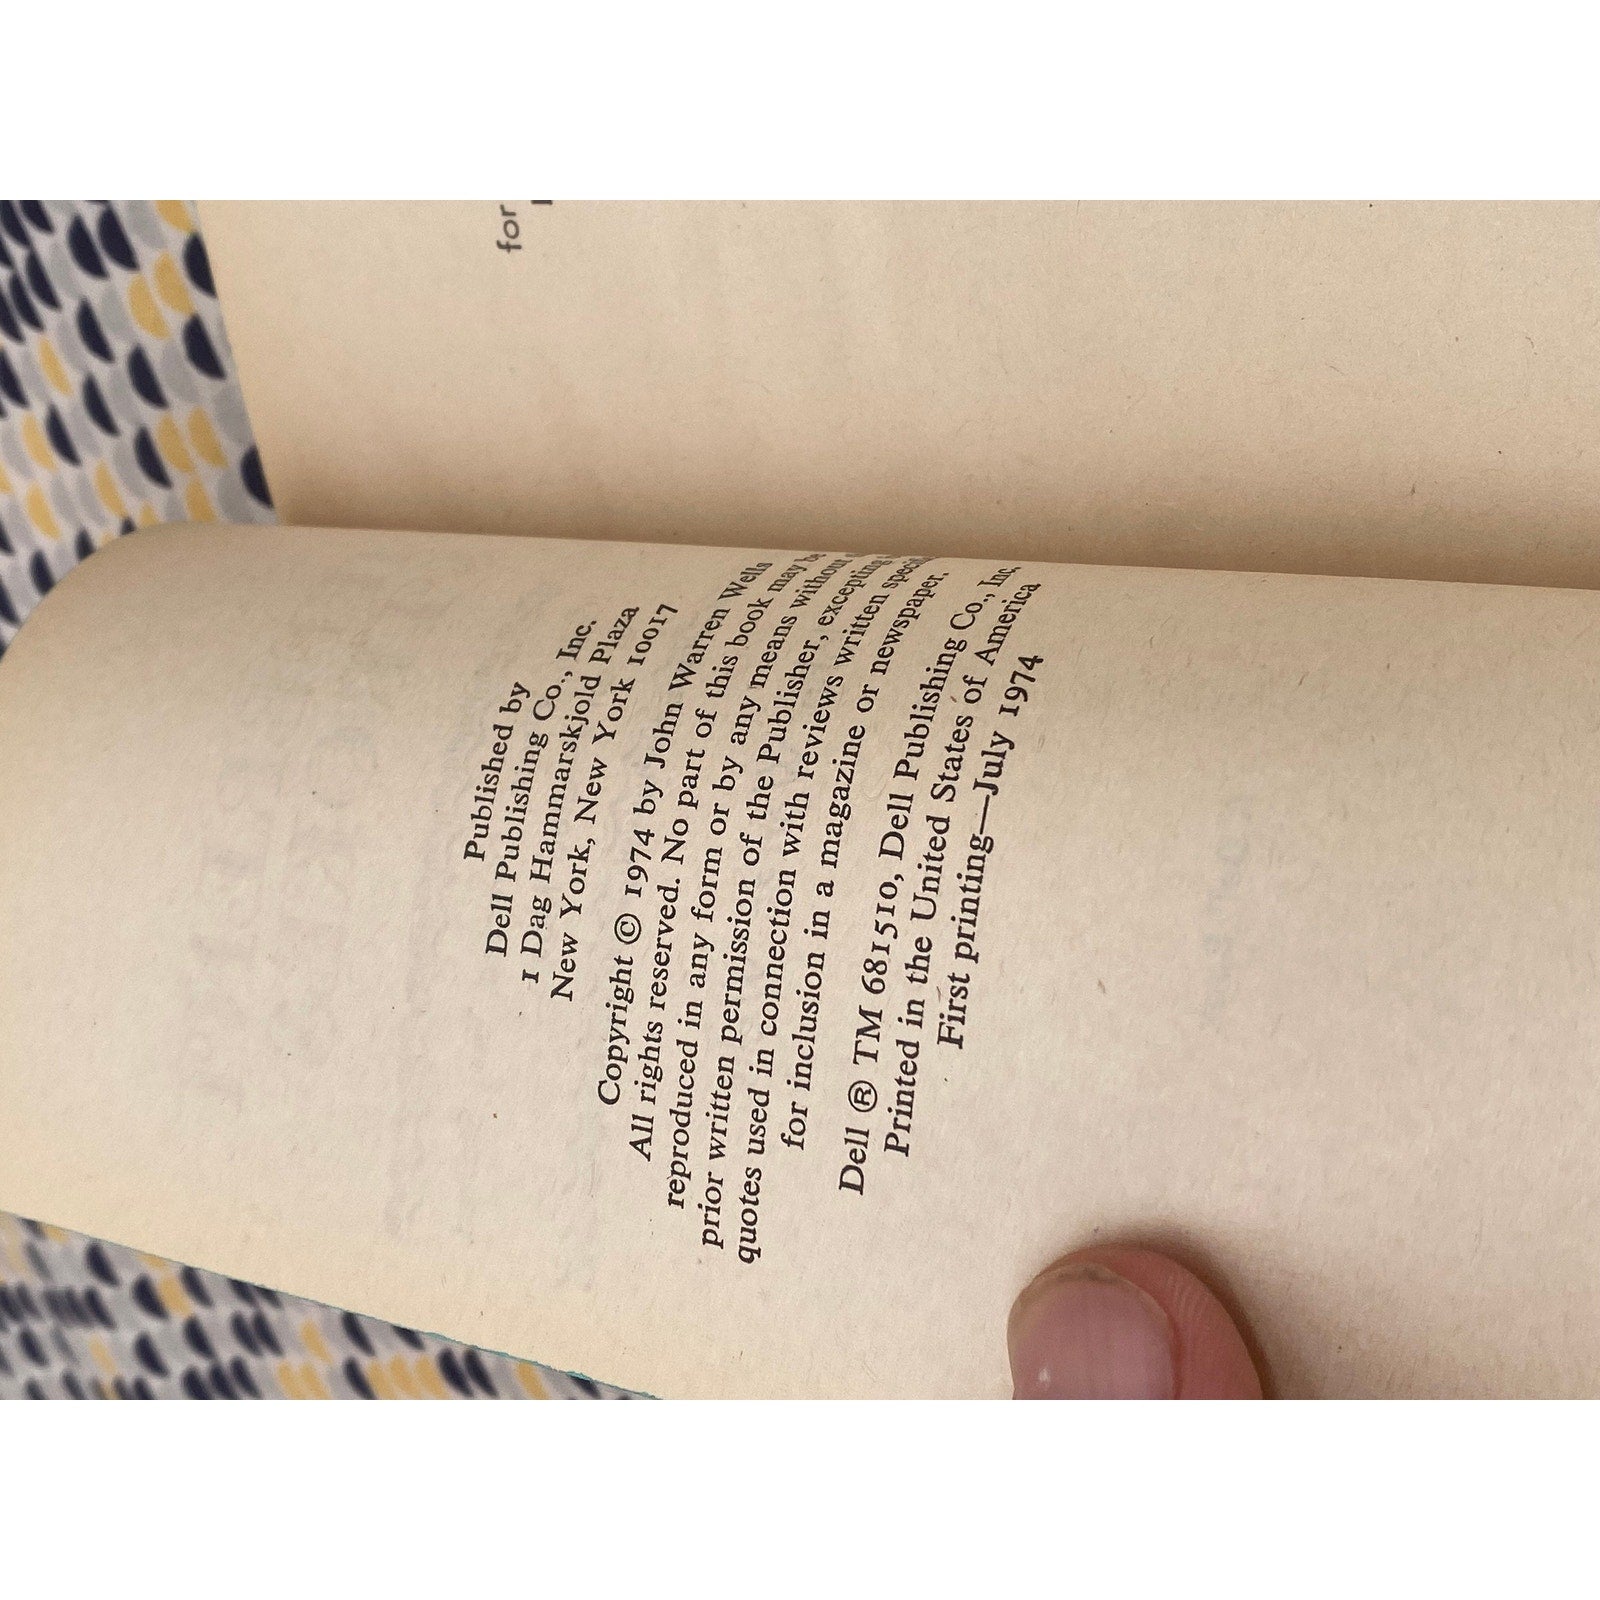 for
Published by
Dell Publishing Co., Inc.
1 Dag Hammarskjold Plaza
New York, New York 10017
Copyright © 1974 by John Warren Wells
All rights reserved. No part of this book may be
reproduced in any form or by any means without
prior written permission of the Publisher, excepting
quotes used in connection with reviews written
for inclusion in a magazine or newspaper.
Dell ® TM 681510, Dell Publishing Co., Inc.
Printed in the United States of America
First printing—July 1974